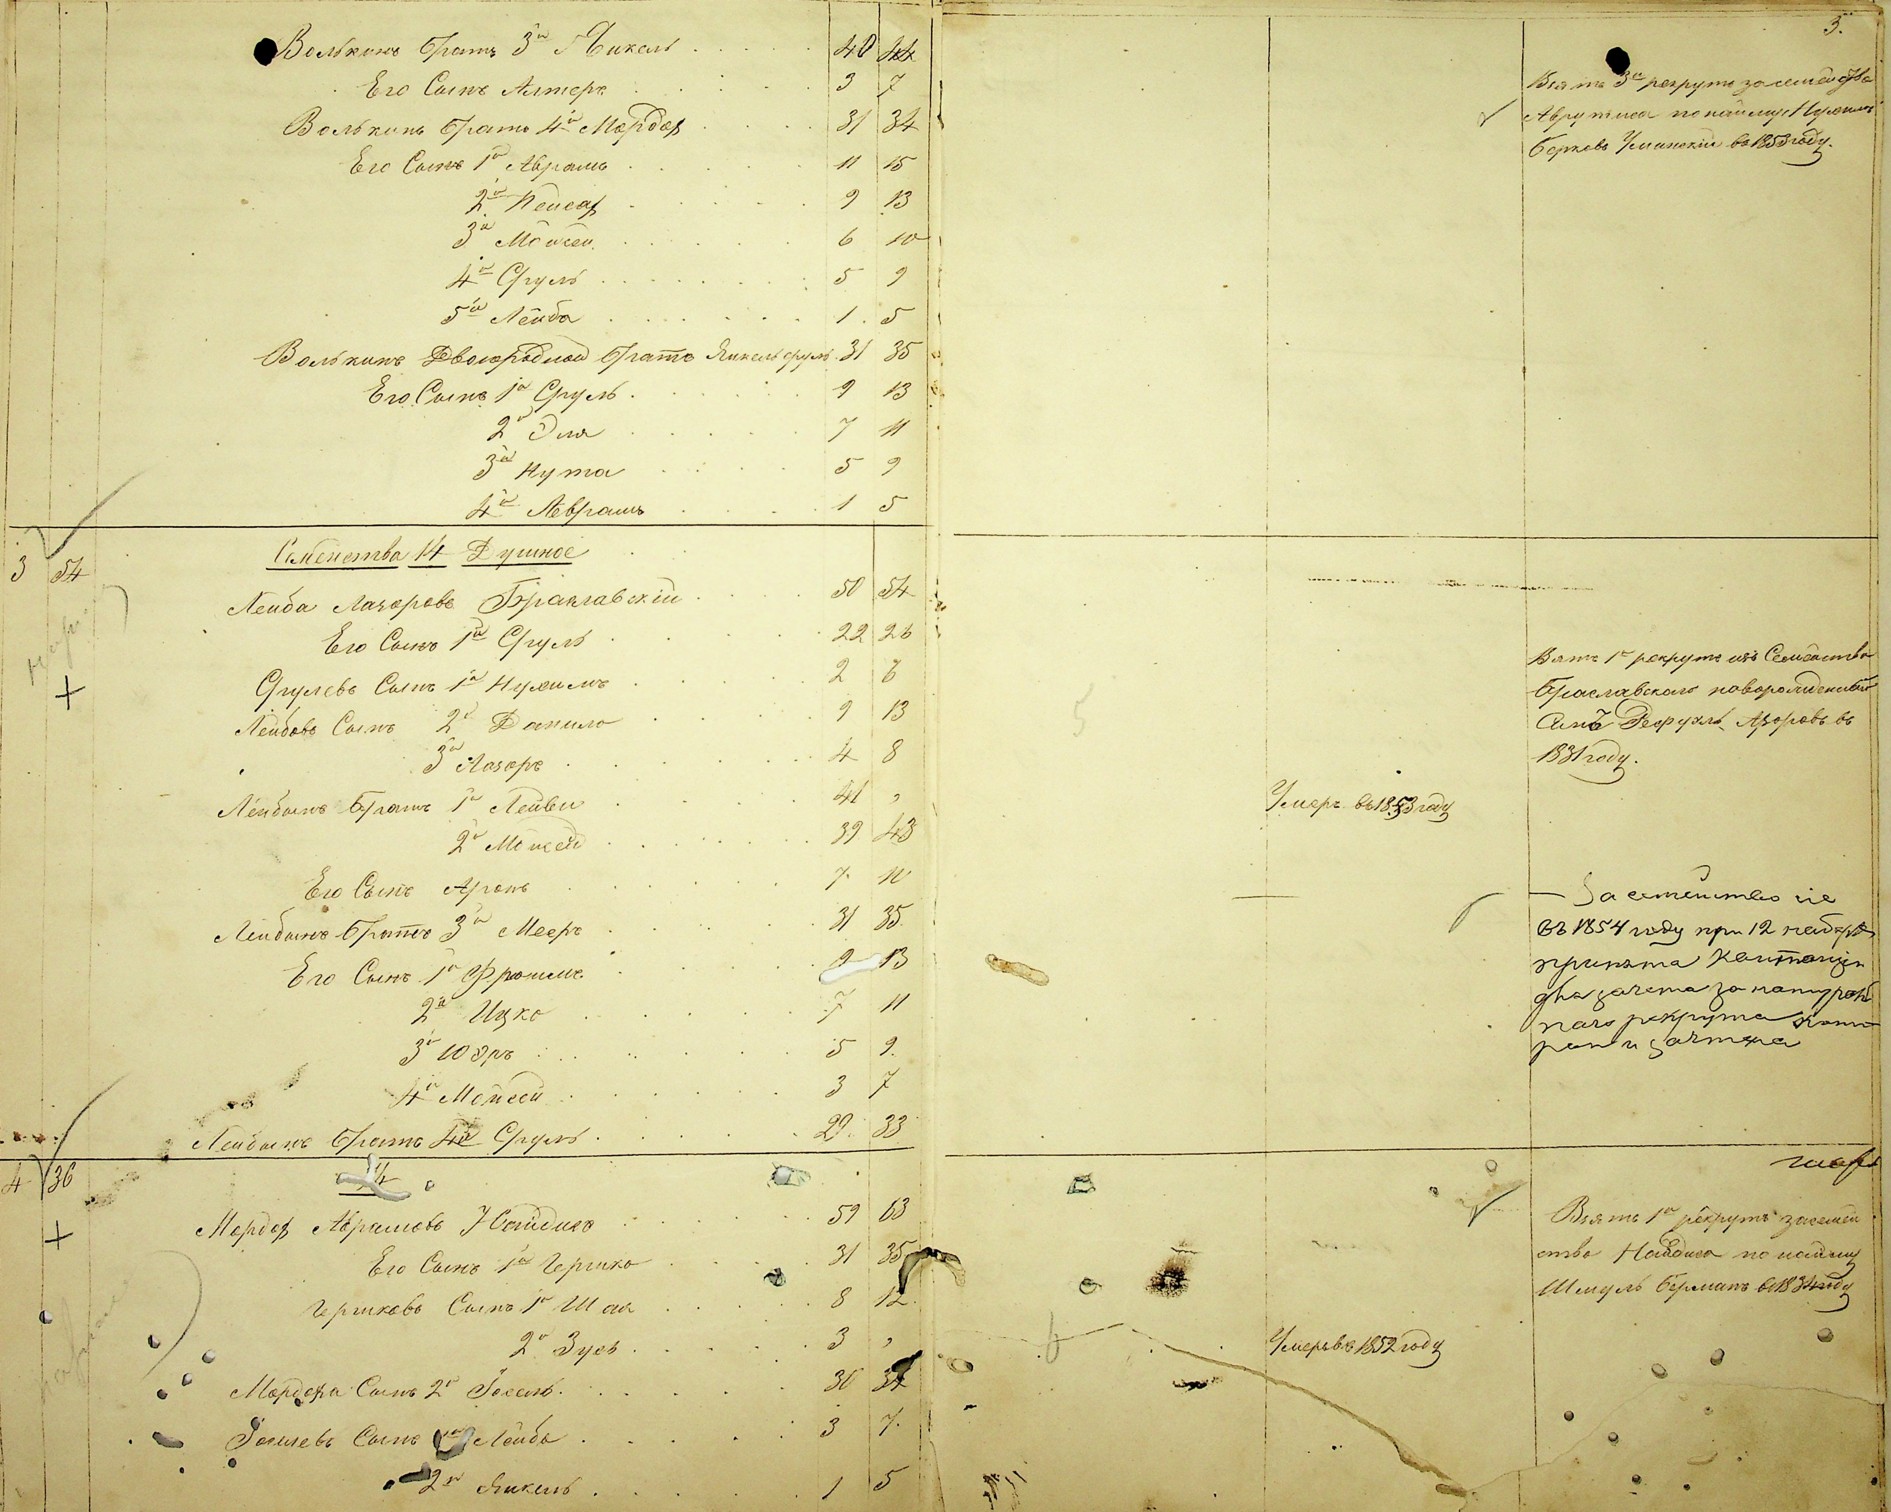 3.
Волькинъ братъ 3й Янкель 40 44
Его Сынъ Алтеръ 3 7
Волькинъ братъ 4й Мордох 31 34
Его Сынъ 1й Абрамъ 11 15
2й Пейсах 9 13
3й Мойсей 6 10
4й Сруль 5 9
5й Лейба 1 5
Волькинъ Двоюродной братъ Янкель сруль 31 35
Его Сынъ 1й Сруль 9 13
2й Эля 7 11
3й Нута 5 9
4й Абрамъ 1 5
Взятъ 3й рекрутъ за семейство
по найму Нухимъ
Берковъ Уманскій въ 1853 году.
3 54
Семейства 14 Душное
Лейба Лазоровъ Браславскій 50 54
Его Сынъ 1й Сруль 22 26
Срулевъ Сынъ 1й Нухимъ 2 6
Лейбовъ Сынъ 2й Данило 9 13
3й Лазоръ 4 8
Лейбинъ братъ 1й Лейви 41 ,
2й Мойсей 39 43
Его Сынъ Аронъ 7 11
Лейбинъ братъ 3й Мееръ 31 35
Его Сынъ 1й Фроимъ 9 13
2й Ицко 7 11
3й 5 9
4й Мойсей 3 7
Лейбинъ братъ 4й Сруль 29 33
Умеръ въ 1853 году
Взятъ 1й рекрутъ изъ Семейства
Браславскаго
въ
году.
За семейство сіе
въ 1854 году при 12 наборѣ
принята квитанція
два зачета за
наго рекрута
и зачтена
4 36
14
Мордох Абрамовъ Найдисъ 59 63
Его Сынъ 1й Гершко 31 35
Гершковъ Сынъ 1й Шая 8 12
2й Зусь 3 ,
Мордоха Сынъ 2й Іосель 30 34
Іоселевъ Сынъ 1й Лейба 3 7
2й Янкель 1 5
Умеръ въ 1852 году
Взятъ 1й рекрутъ за семей
ство Найдиса по найму
Шмуль Берманъ въ году
5
6